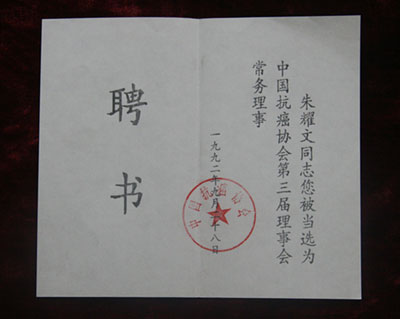 朱耀文同志您被当选为
中国抗癌协会第三届理事会
常务理事
一九九二年九月八日
中国抗癌协会
聘书